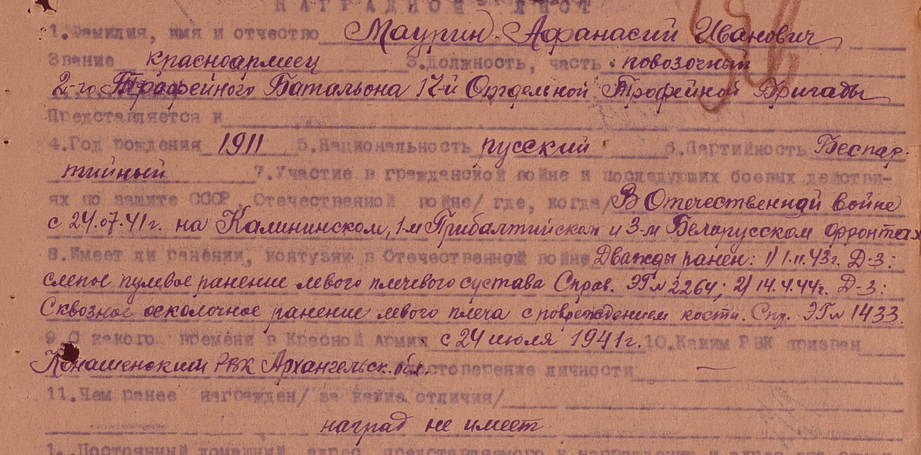 НАГРАДНОЙ ЛИСТ
1. Фамилия, имя и отчество Маурин Афанасий Иванович
Звание красноармеец 3. Должность, часть повозочный
2-го Трофейного Батальона 12-й Отдельной Трофейной Бригады
Представляется к
4. Год рождения 1911 5. Национальность русский 6. Партийность Беспар-
тийный 7. Участие в гражданской войне и последующих боевых действи-
ях по защите СССР, Отечественной войне/ где, когда/ В Отечественной войне
с 24.07.41г. на Калининском, 1-м Прибалтийском и 3-м Белорусском фронтах
8. Имеет ли ранения, контузии в Отечественной войне Дважды ранен: 1) 1.11.43г. Д-з:
слепое пулевое ранение левого плечевого сустава Справ. ЭГ№ 2264; 2) 14.4.44г. Д-з:
Сквозное осколочное ранение левого плеча с повреждением кости. Спр. ЭГ№ 1433.
9. С какого времени в Красной Армии с 24 июля 1941г. 10. Каким РВК призван
РВК Архангельск. обл. личности
11. Чем ранее награжден/ за какие отличия/
наград не имеет
1. Постоянный домашний адрес представляемого к награждению и адрес его семьи